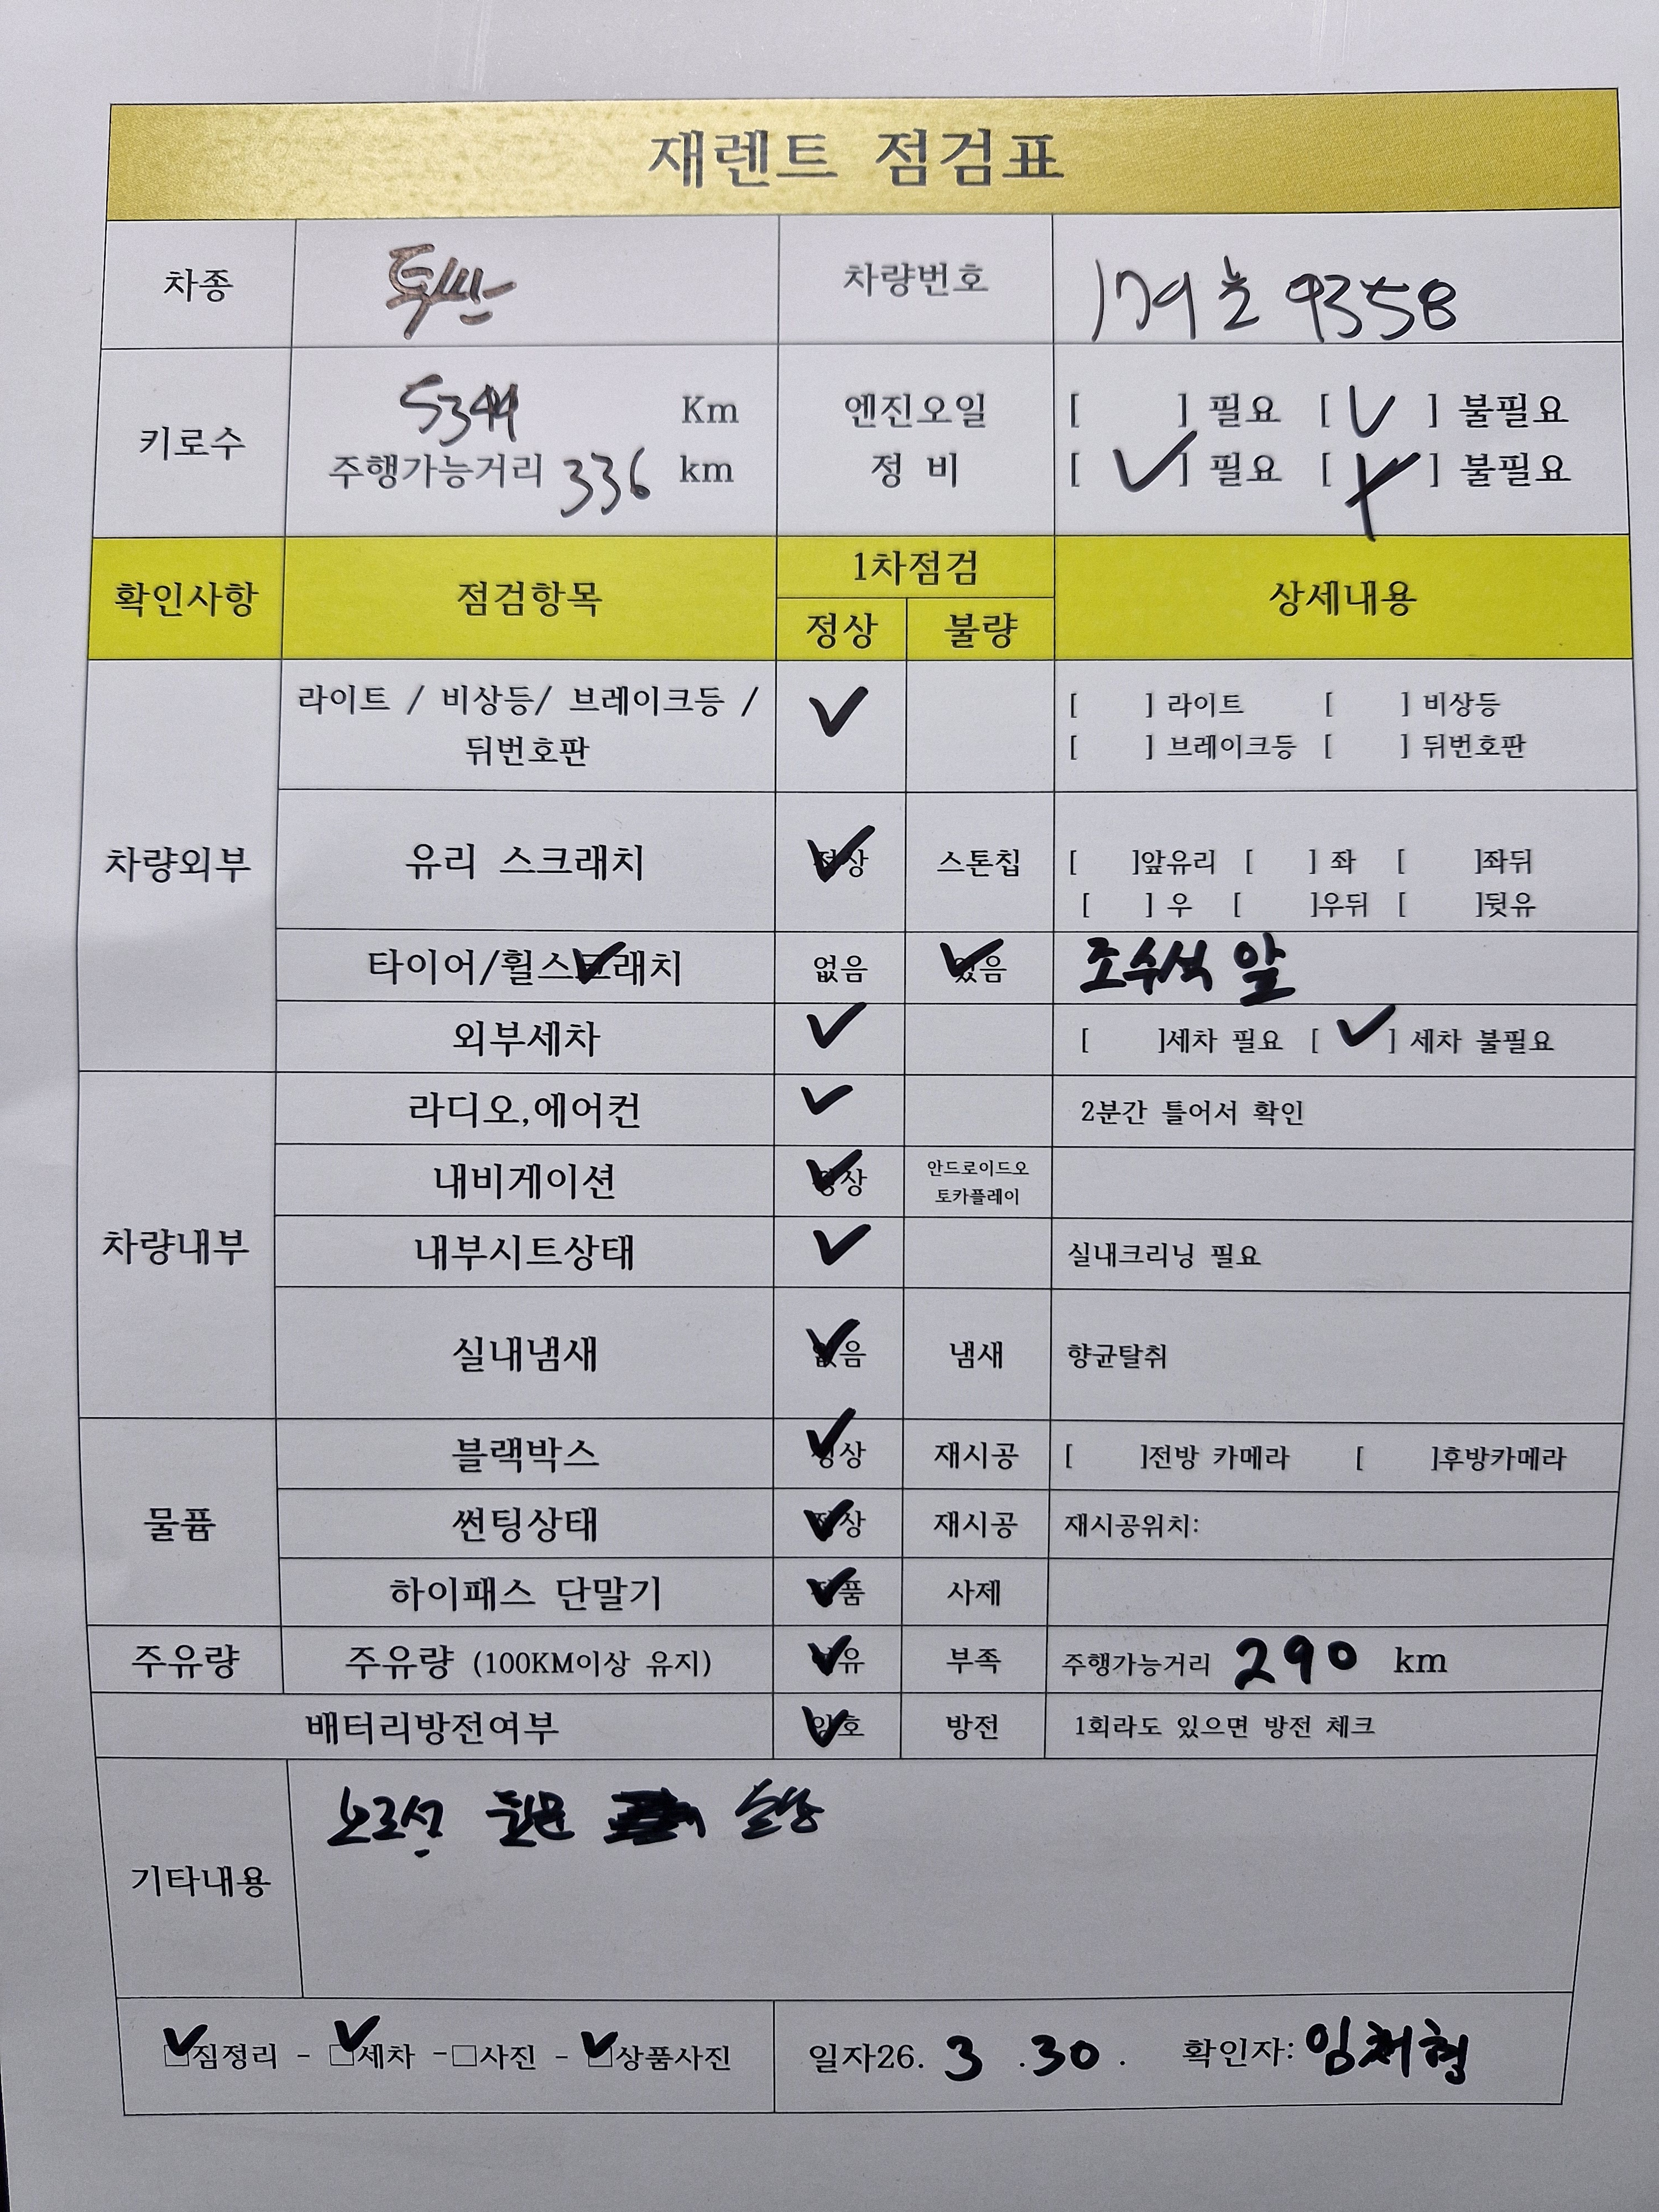 재렌트 점검표
차종 투싼 차량번호
9358
키로수 Km 엔진오일 [ ] 필요 [ ✓ ] 불필요
주행가능거리 336 km 정 비 [ ✓ ] 필요 [ ] 불필요
확인사항 점검항목 1차점검 상세내용
정상 불량
차량외부
라이트 / 비상등/ 브레이크등 / ✓ [ ] 라이트 [ ] 비상등
뒤번호판 [ ] 브레이크등 [ ] 뒤번호판
유리 스크래치 ✓ 정상 스톤칩 [ ]앞유리 [ ] 좌 [ ]좌뒤
[ ] 우 [ ]우뒤 [ ]뒷유
타이어/휠스크래치 없음 ✓ 있음 조수석 앞
외부세차 ✓ [ ]세차 필요 [ ✓ ] 세차 불필요
차량내부
라디오,에어컨 ✓ 2분간 틀어서 확인
내비게이션 ✓ 정상 안드로이드오
토카플레이
내부시트상태 ✓ 실내크리닝 필요
실내냄새 ✓ 없음 냄새 향균탈취
물품
블랙박스 ✓ 정상 재시공 [ ]전방 카메라 [ ]후방카메라
썬팅상태 ✓ 정상 재시공 재시공위치:
하이패스 단말기 ✓ 사제
주유량 주유량 (100KM이상 유지) ✓ 부족 주행가능거리 290 km
배터리방전여부 ✓ 양호 방전 1회라도 있으면 방전 체크
기타내용
뒷문
✓짐정리 - ✓세차 -□사진 - ✓상품사진 일자26. 3 .30 . 확인자: